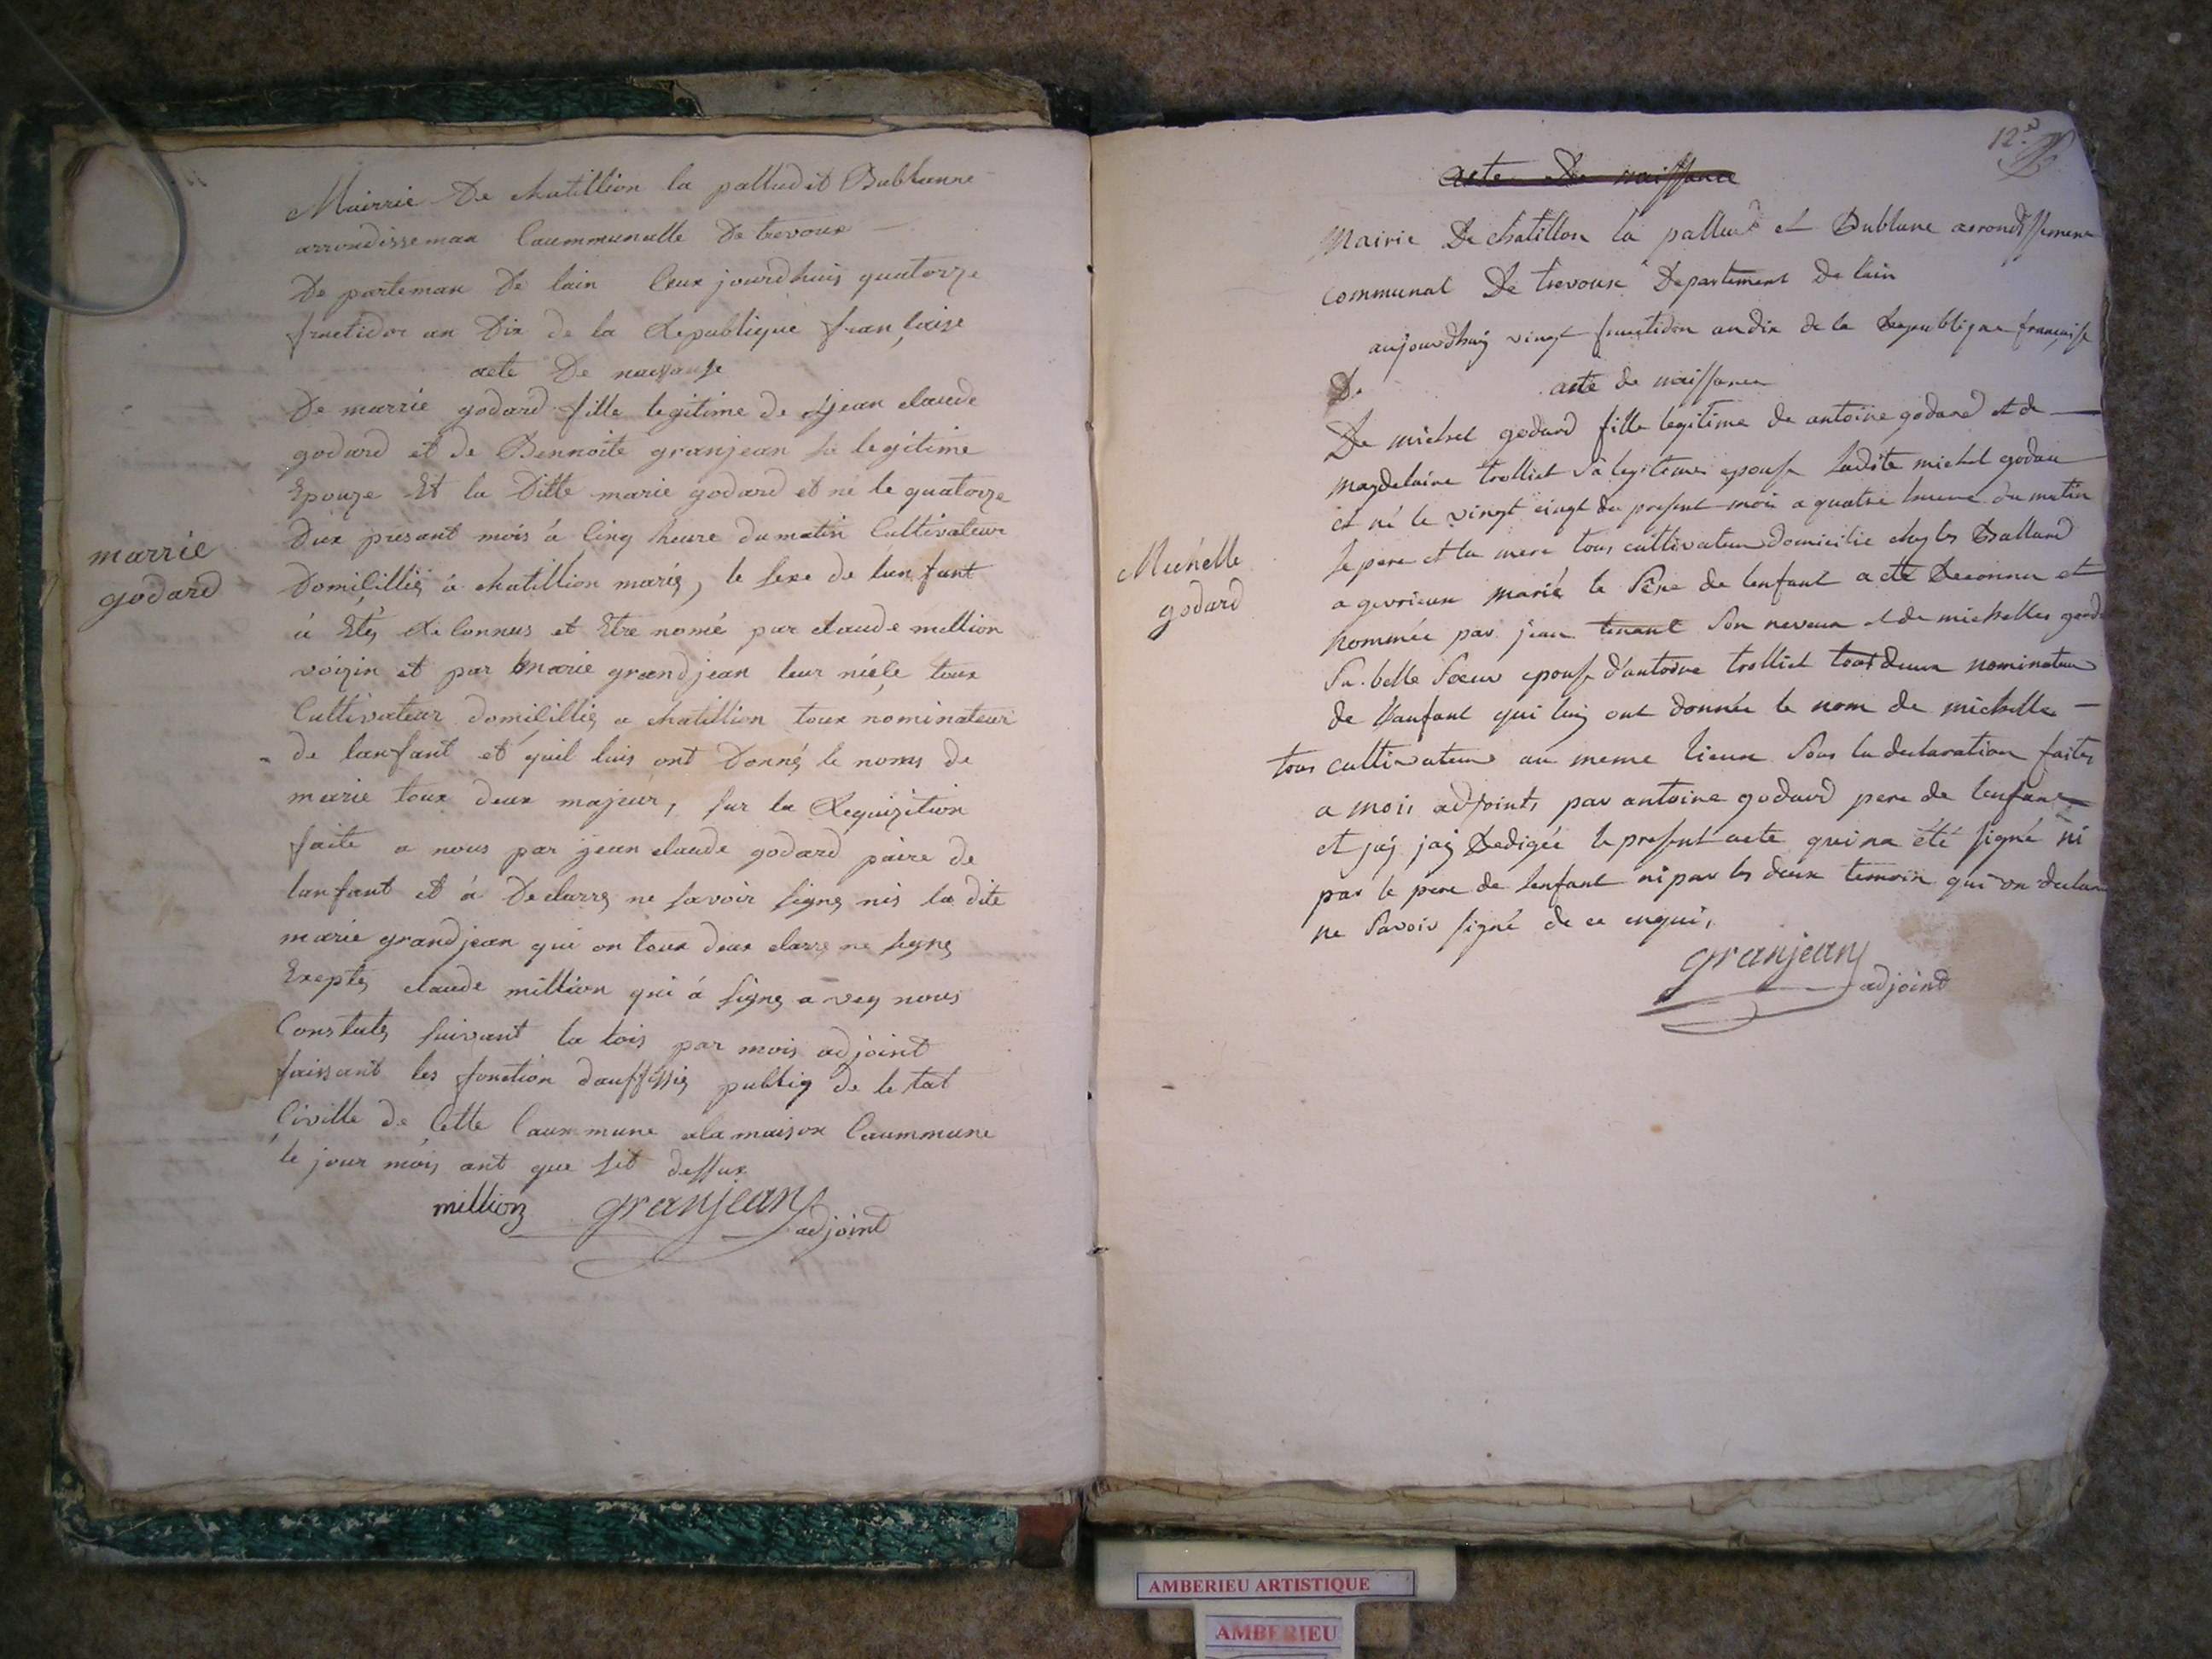 Mairrie De chatillion la palludit Bublanne
arrondisseman Caummunalle De trevoux
De parteman De lain Ceux jourdhuis quatorze
fructidor an Dix de la Republique francaise
acte De naissansse
De marrie godard fille legitime de jean claude
godard et de Bennoite granjean sa legitime
Epouze Et la Ditte marie godard et né le quatorze
Dux présant mois à Cinq heure du matin Cultivateur
Domiciliiés à chatillion mariés, le sexe de lenfant
marrie
godard
à Etés Reconnus et Etre nomé par claude million
voizin et par Marie grandjean leur niéce toux
Cultivateur domicilliés a chatillion toux nominateur
de lanfant et quil luis ont Donnés le noms de
marie toux deux majeur, sur la Requizition
faite a nous par jean claude godard paire de
lanfant et à Declarrés ne savoir signes nis la dite
marie grandjean qui on toux deux clarrs ne signes
Exeptés claude million qui à signes avey nous
Constates suivant la lois par mois adjoint
faissant les fonction dauffissies publiq de le tat
Civille de Cette Caummune ala maison Caummune
le jour mois ant que sit dessux
million granjean
adjoint
12.e
acte De naissance
Mairie De chatillon la pallud et Bublane arrondissement
communal De trevoux Departement de lain
aujourdhuy vingt fructidor an dix de la Republique francaise
De acte de naissance
De michel godard fille legitime de antoine godard et de
magdelaine trolliet sa legitime epouse ladite michel godard
et né le vingt cingt du present mois a quatre heure du matin
le pere et la mere tous cultivateur domicilie chez les Ballard
Michelle
godard
a gevrieux marié le sexe de lenfant a été Reconnu et
nommée par jean tenant son neveux et de michelles godard
sa belle soeur epouse d'antoine trolliet tous deux nominateur
de lanfant qui luy ont donnée le nom de michelle
tous cultivateur au meme lieux sous la declaration faites
a mois adjoints par antoine godard pere de lenfant
et jáj jaj Redigée le present acte qui na été signé ni
par le pere de lenfant ni par les deux temoin qui on declaré
ne savoir signé de ce enqui,
granjean
adjoint
AMBERIEU ARTISTIQUE
AMBERIEU